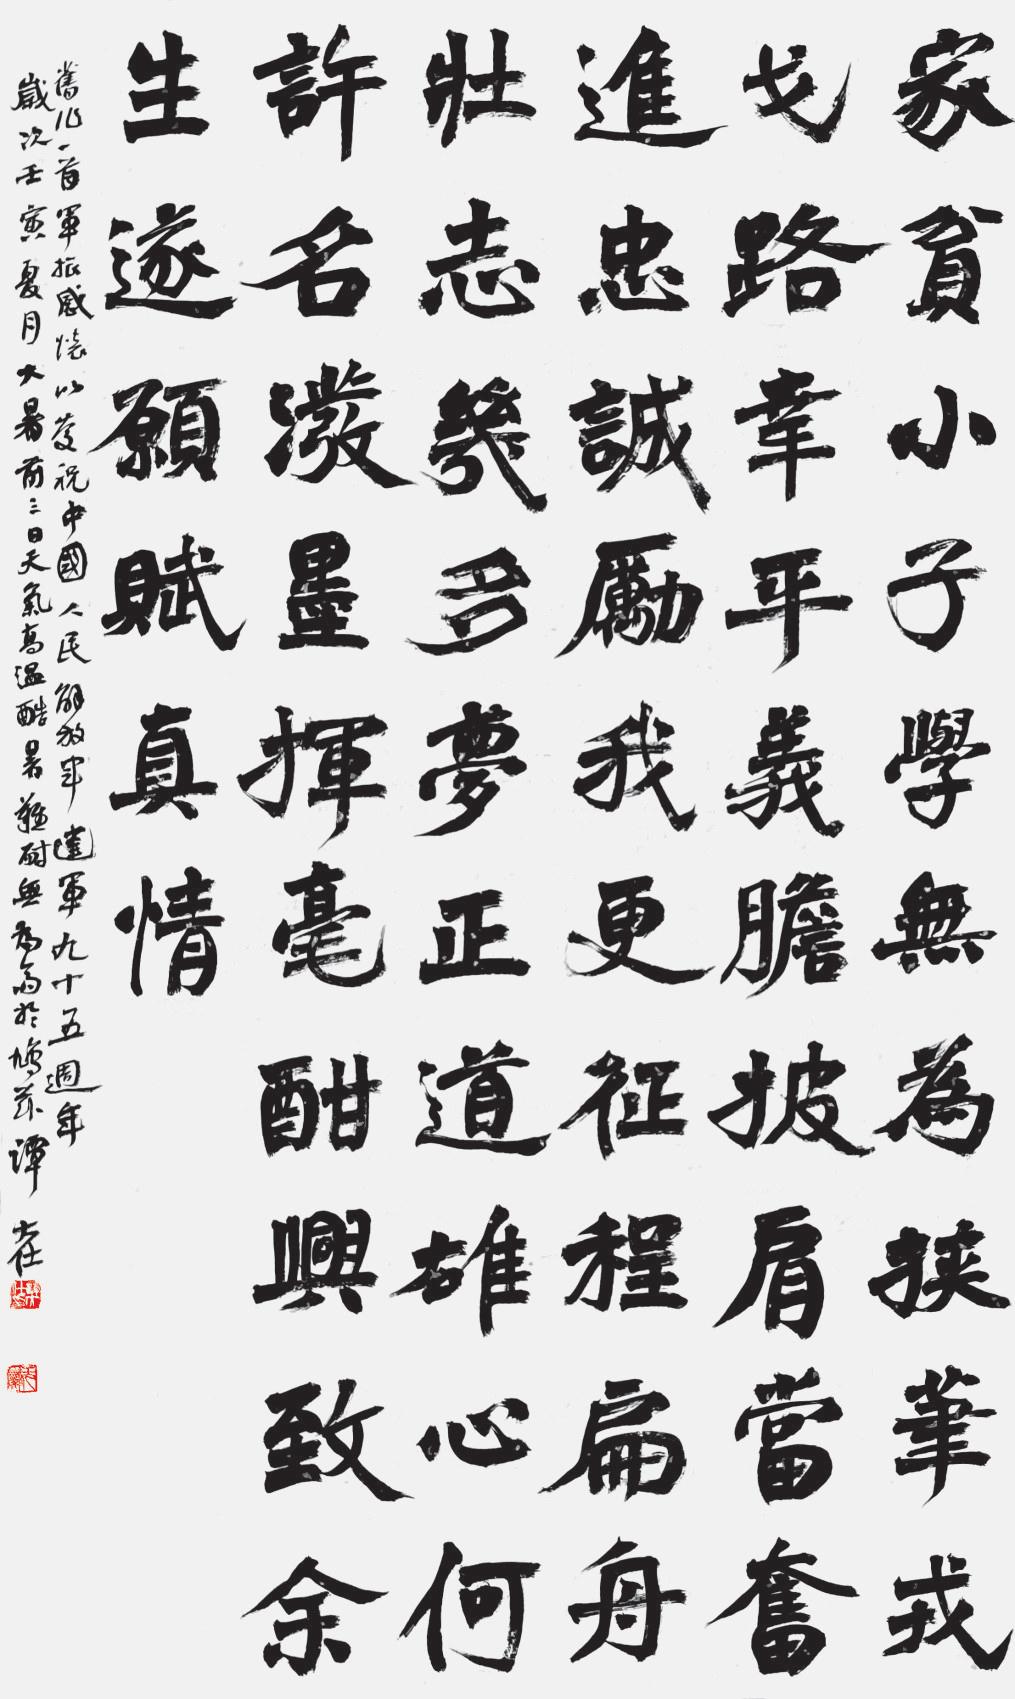 家貧小子學無為挾筆戎
戈路幸平義膽披肩當奮
進忠誠勵我更征程扁舟
壯志幾多夢正道雄心何
許名潑墨揮毫酣興致余
生遂願賦真情
舊作一首軍旅感懷以慶祝中國人民解放軍建軍九十五週年
歲次壬寅夏月大暑前三日天氣高溫酷暑難耐無為為於鳩茲譚